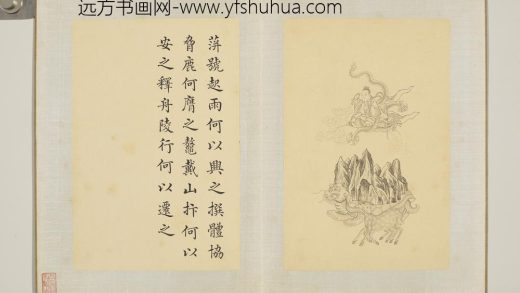 远方书画网-www.yfshuhua.com
蓱號起雨何以興之撰體協
脅鹿何膺之鼇戴山抃何以
安之釋舟陵行何以遷之